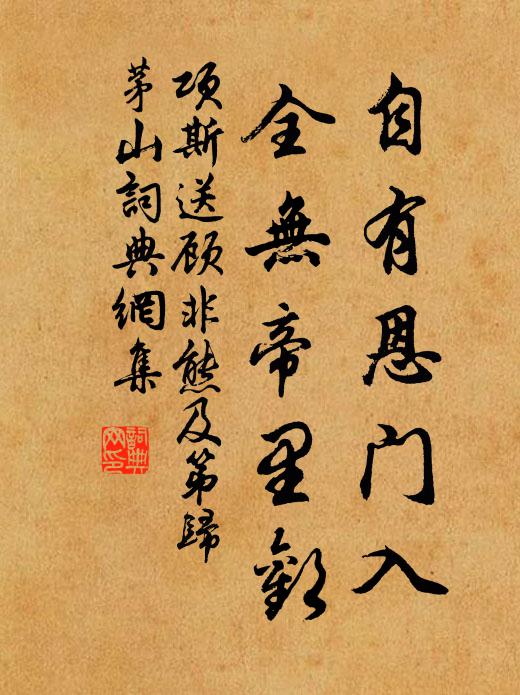 自有恩门入
全無帝里歡
项斯送顾非熊及第歸
茅山詞典網集
詞典
网印